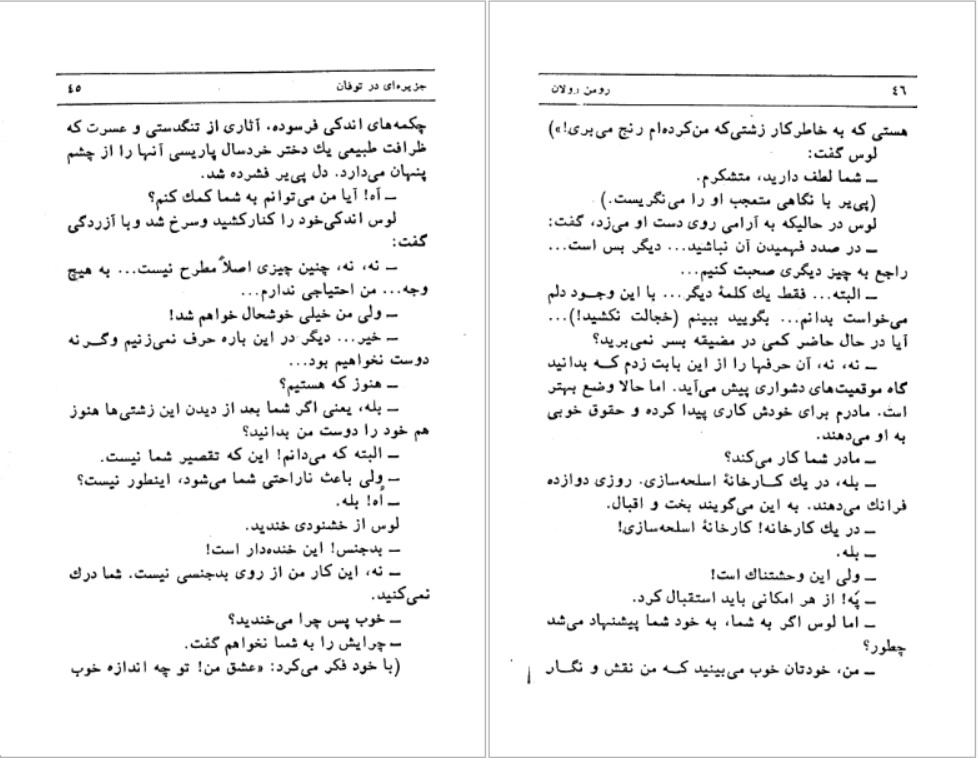 جزیره‌ای در توفان ٤٥
چکمه‌های اندکی فرسوده، آثاری از تنگدستی و عسرت که
ظرافت طبیعی یك دختر خردسال پاریسی آنها را از چشم
پنهان می‌دارد. دل پی‌یر فشرده شد.
ــ آه! آیا من می‌توانم به شما کمك کنم؟
لوس اندکی خود را کنار کشید و سرخ شد و با آزردگی
گفت:
ــ نه، نه، چنین چیزی اصلاً مطرح نیست... به هیچ
وجه... من احتیاجی ندارم...
ــ ولی من خیلی خوشحال خواهم شد!
ــ خیر... دیگر در این باره حرف نمی‌زنیم وگرنه
دوست نخواهیم بود...
ــ هنوز که هستیم؟
ــ بله، یعنی اگر شما بعد از دیدن این زشتی‌ها هنوز
هم خود را دوست من بدانید؟
ــ البته که می‌دانم! این که تقصیر شما نیست.
ــ ولی باعث ناراحتی شما می‌شود، اینطور نیست؟
ــ اُه! بله.
لوس از خشنودی خندید.
ــ بدجنس! این خنده‌دار است!
ــ نه، این کار من از روی بدجنسی نیست. شما درك
نمی‌کنید.
ــ خوب پس چرا می‌خندید؟
ــ چرایش را به شما نخواهم گفت.
(با خود فکر می‌کرد: «عشق من! تو چه اندازه خوب
٤٦ رومن رولان
هستی که به خاطر کار زشتی‌که من کرده‌ام رنج می‌بری!»)
لوس گفت:
ــ شما لطف دارید، متشکرم.
(پی‌یر با نگاهی متعجب او را می‌نگریست.)
لوس در حالیکه به آرامی روی دست او می‌زد، گفت:
ــ در صدد فهمیدن آن نباشید... دیگر بس است...
راجع به چیز دیگری صحبت کنیم...
ــ البته... فقط یك کلمهٔ دیگر... با این وجود دلم
می‌خواست بدانم... بگویید ببینم (خجالت نکشید!)...
آیا در حال حاضر کمی در مضیقه بسر نمی‌برید؟
ــ نه، نه، آن حرفها را از این بابت زدم که بدانید
گاه موقعیت‌های دشواری پیش می‌آید. اما حالا وضع بهتر
است. مادرم برای خودش کاری پیدا کرده و حقوق خوبی
به او می‌دهند.
ــ مادر شما کار می‌کند؟
ــ بله، در یك کارخانهٔ اسلحه‌سازی. روزی دوازده
فرانك می‌دهند. به این می‌گویند بخت و اقبال.
ــ در یك کارخانه! کارخانهٔ اسلحه‌سازی!
ــ بله.
ــ ولی این وحشتناك است!
ــ پَه! از هر امکانی باید استقبال کرد.
ــ اما لوس اگر به شما، به خود شما پیشنهاد می‌شد
چطور؟
ــ من، خودتان خوب می‌بینید که من نقش و نگار